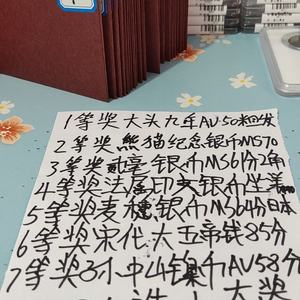 1等奖大头九年AU50粗发
2等奖熊猫纪念银币MS70
3等奖贰毫银币MS61分2角
4等奖法属印支银币坐洋
5等奖麦穗银币MS64分日本
6等奖宋代大五帝钱85分
7等奖3个中山镍币AV58分
大奖